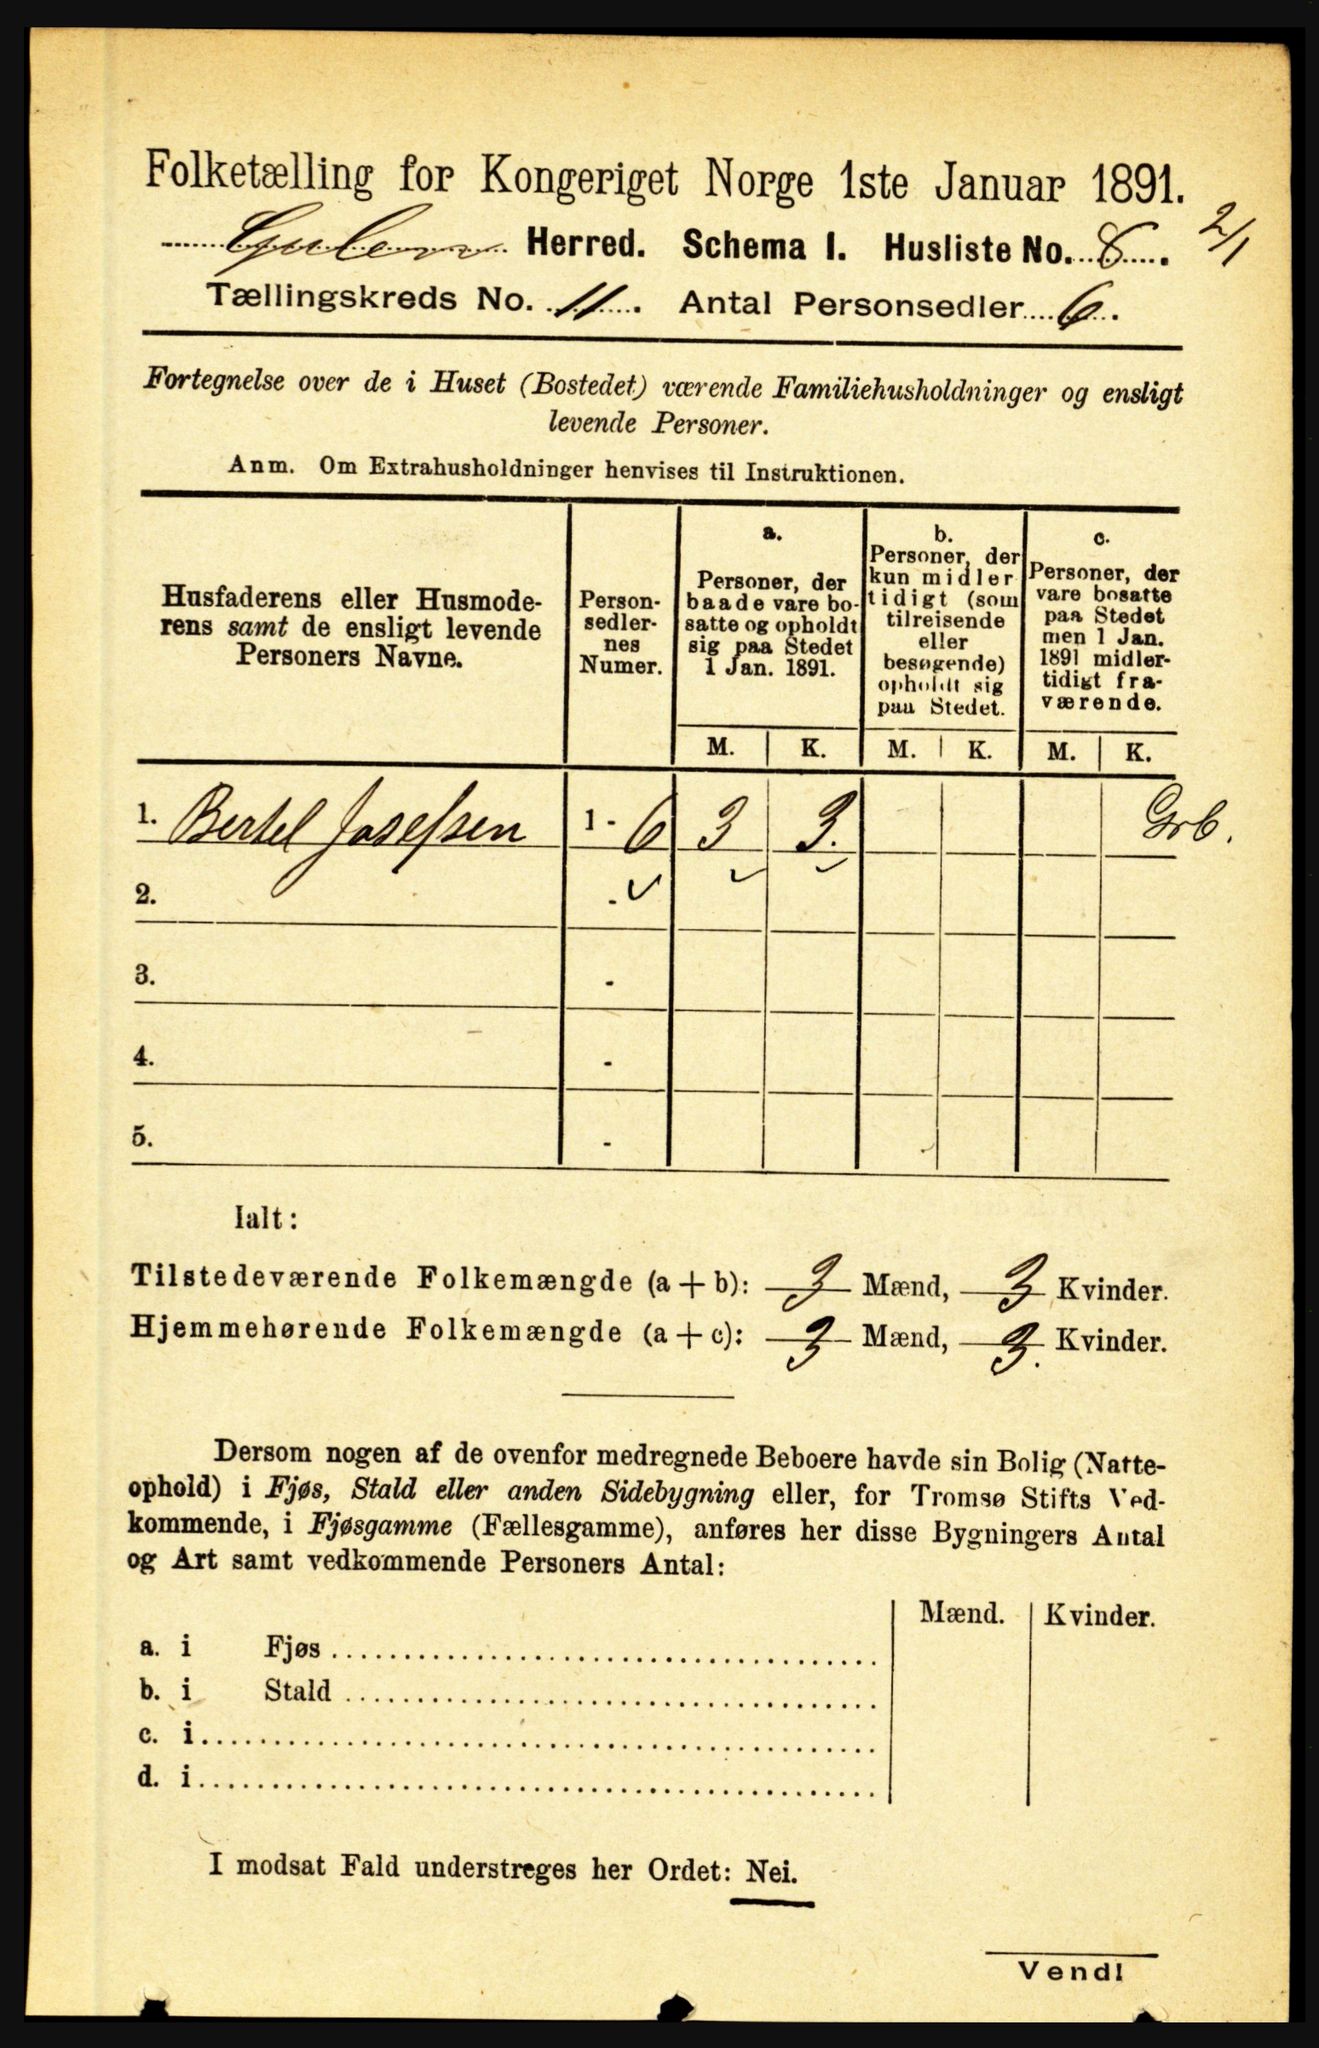 Folketælling for Kongeriget Norge 1ste Januar 1891.
Gulen Herred. Schema I. Husliste No. 8. 2/1
Tællingskreds No. 11. Antal Personsedler 6.
Fortegnelse over de i Huset (Bostedet) værende Familiehusholdninger og ensligt
levende Personer.
Anm. Om Extrahusholdninger henvises til Instruktionen.
Husfaderens eller Husmode-
rens samt de ensligt levende
Personers Navne.
Person-
sedler-
nes
Numer.
a.
Personer, der
baade vare bo-
satte og opholdt
sig paa Stedet
1 Jan. 1891.
b.
Personer, der
kun midler
tidigt (som
tilreisende
eller
besøgende)
opholdt sig
paa Stedet.
c.
Personer, der
vare bosatte
paa Stedet
men 1 Jan.
1891 midler-
tidigt fra-
værende.
M. K. M. K. M. K.
1. Bertel Josefsen 1 - 6 3 3. Grb.
2. -
3. -
4. -
5. -
Ialt:
Tilstedeværende Folkemængde (a + b): 3 Mænd, 3 Kvinder.
Hjemmehørende Folkemængde (a + c): 3 Mænd, 3. Kvinder.
Dersom nogen af de ovenfor medregnede Beboere havde sin Bolig (Natte-
ophold) i Fjøs, Stald eller anden Sidebygning eller, for Tromsø Stifts Ved-
kommende, i Fjøsgamme (Fællesgamme), anføres her disse Bygningers Antal
og Art samt vedkommende Personers Antal:
Mænd. Kvinder.
a. i Fjøs
b. i Stald
c. i
d. i
I modsat Fald understreges her Ordet: Nei.
Vend!